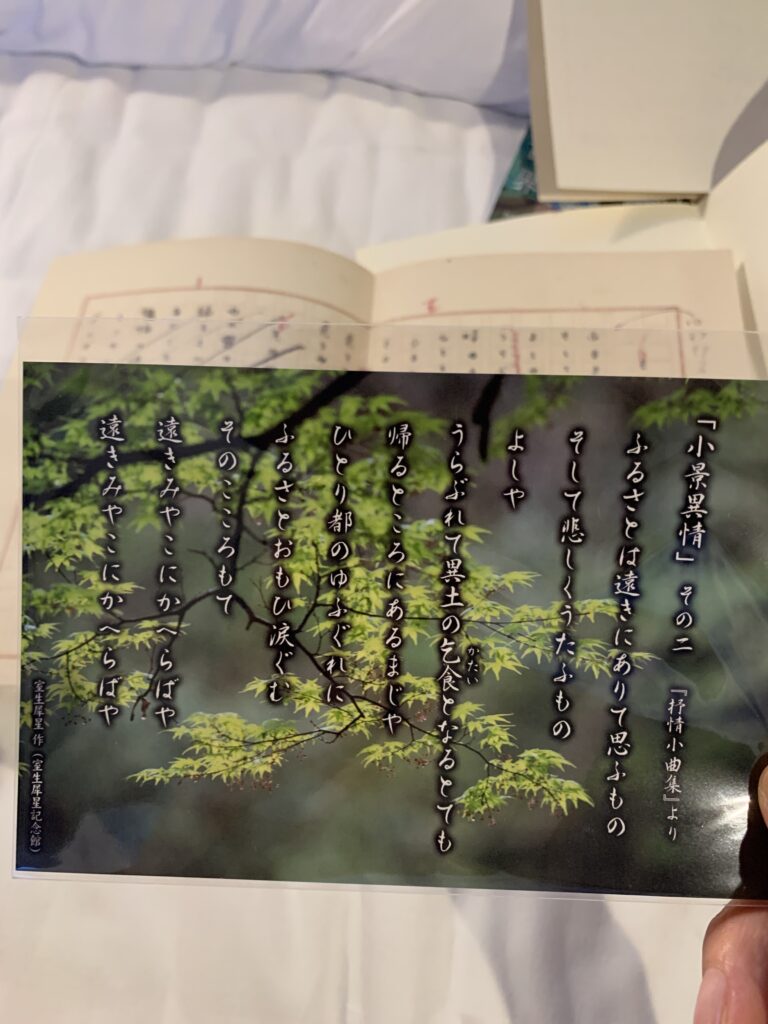 「小景異情」 その二 『抒情小曲集』より
ふるさとは遠きにありて思ふもの
そして悲しくうたふもの
よしや
うらぶれて異土の乞食となるとても
かたい
帰るところにあるまじや
ひとり都のゆふぐれに
ふるさとおもひ涙ぐむ
そのこころもて
遠きみやこにかへらばや
遠きみやこにかへらばや
室生犀星 作（室生犀星記念館）